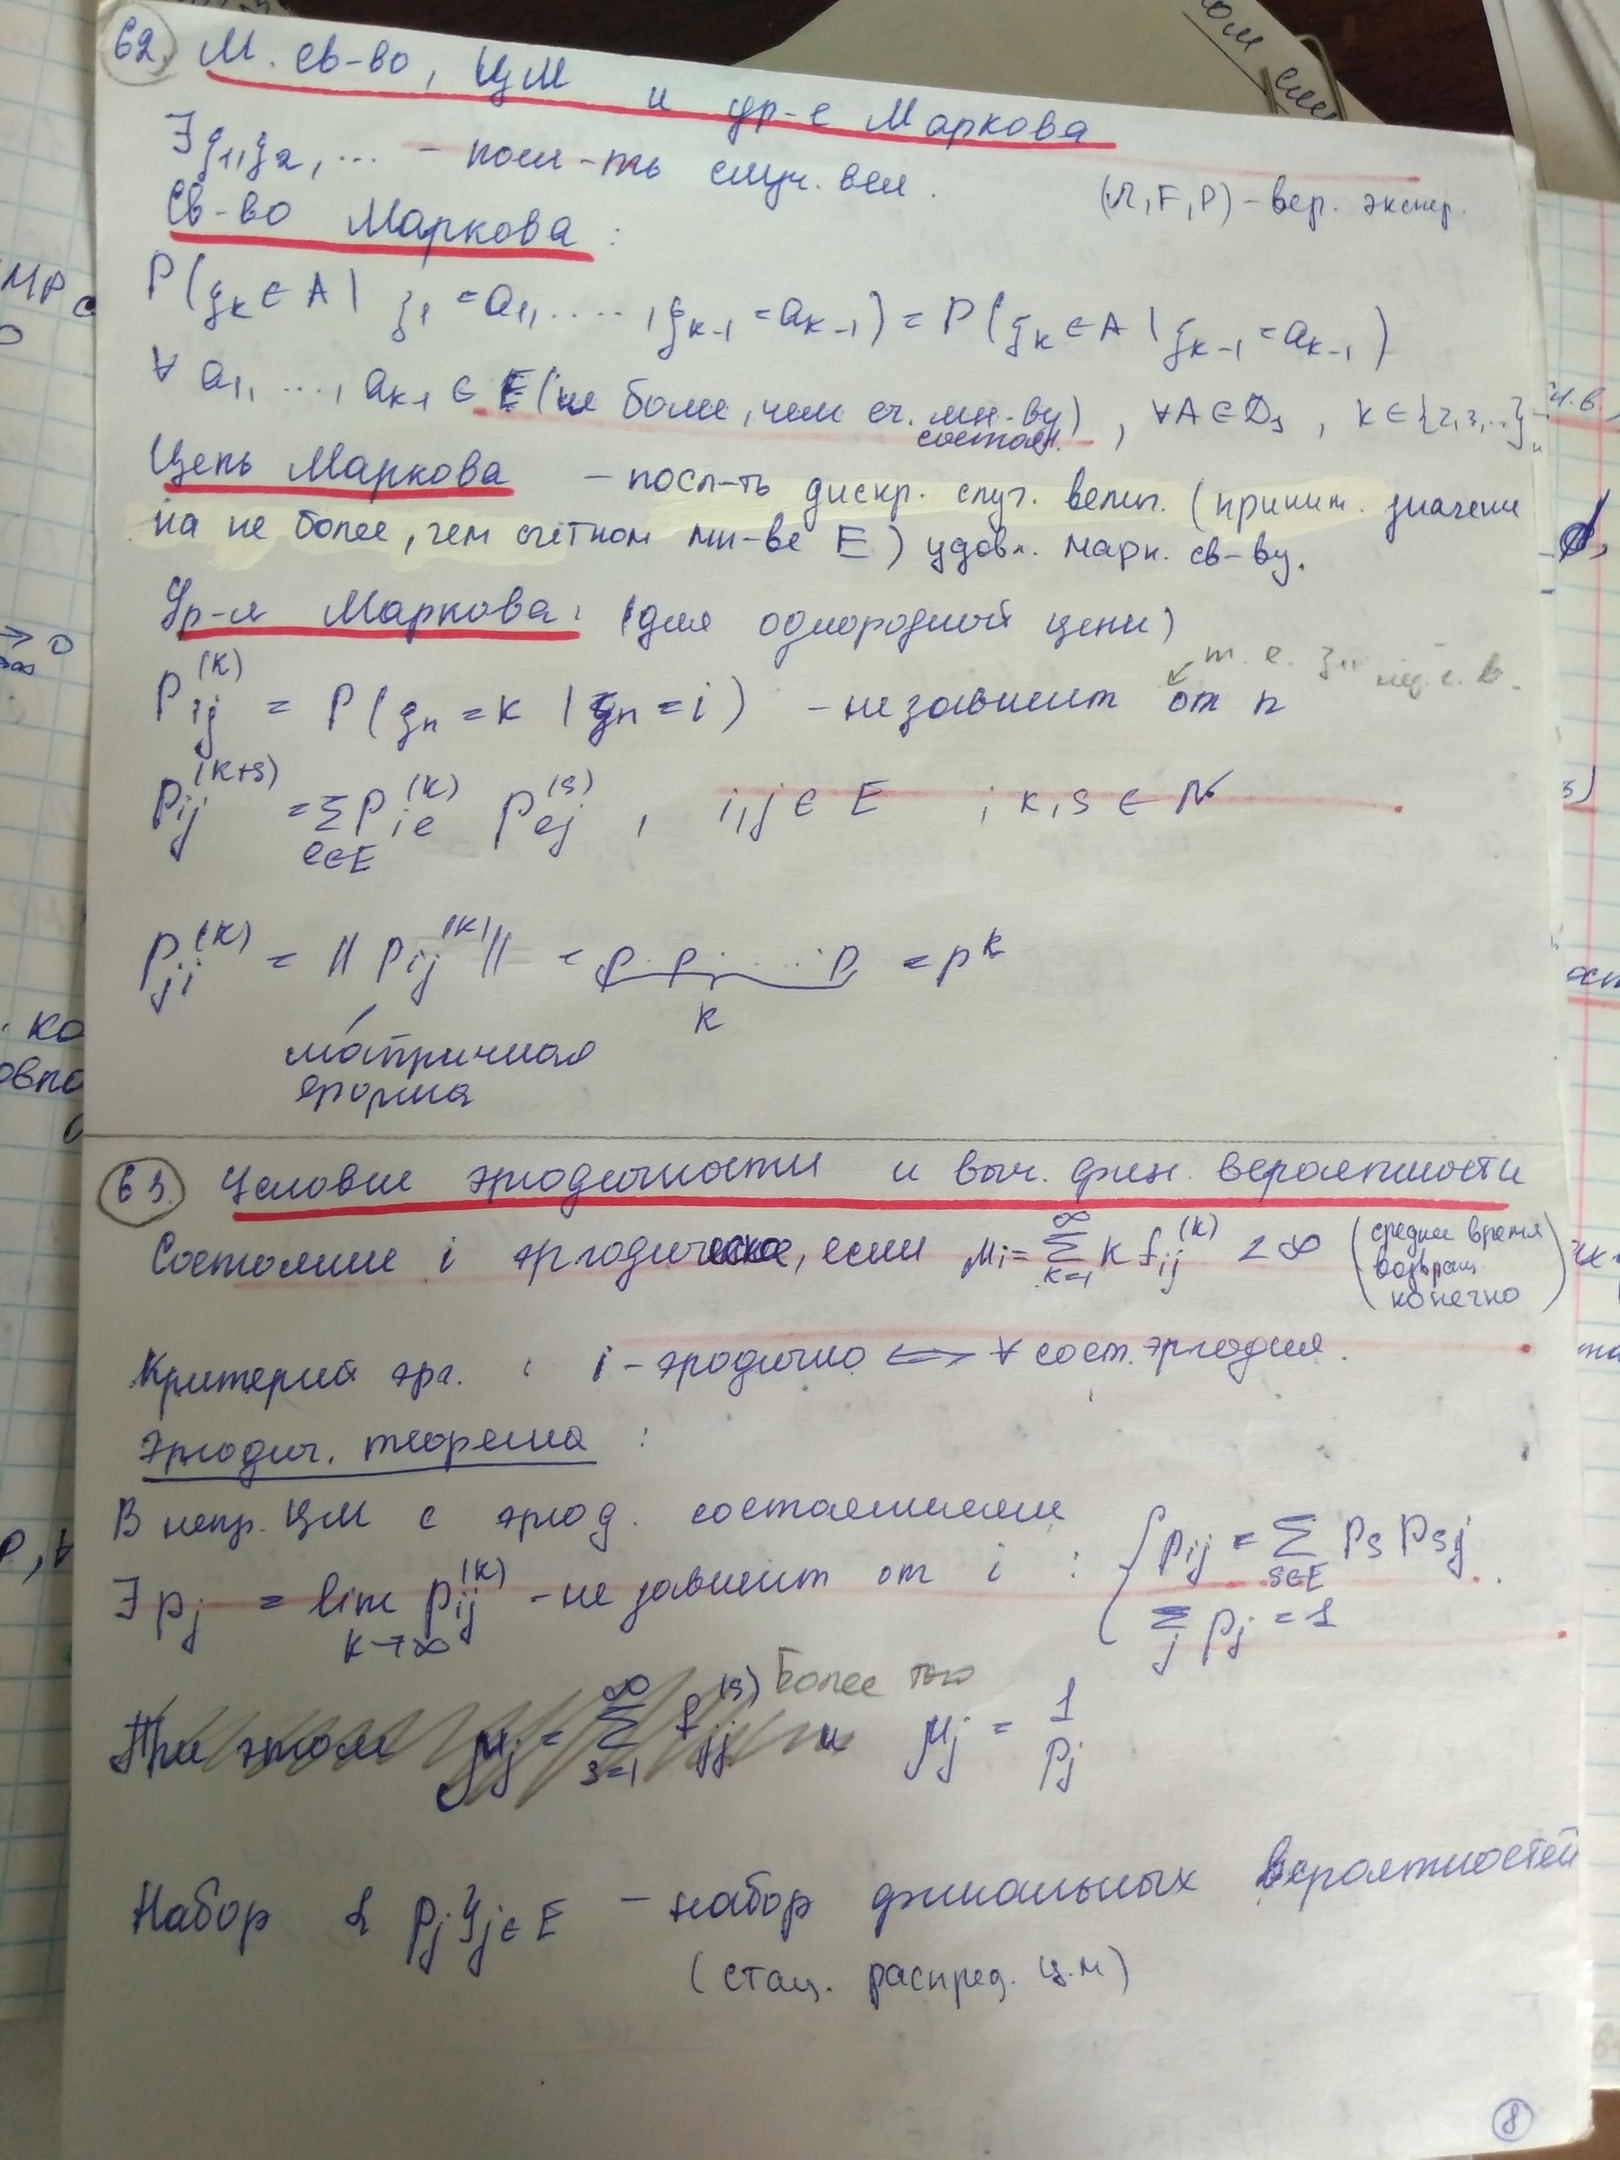 62. М. св-во, ЦМ и ур-е Маркова
∃ ξ₁, ξ₂, ... – посл-ть случ. вел. (Ω, F, P) – вер. экспер.
Св-во Маркова:
P(ξₖ ∈ A | ξ₁ = a₁, ....., ξₖ₋₁ = aₖ₋₁) = P(ξₖ ∈ A | ξₖ₋₁ = aₖ₋₁)
∀ a₁, ..., aₖ₋₁ ∈ E (не более, чем сч. мн-ву), ∀A ∈ 𝒟₁, k ∈ {2,3,..}
состоян.
Цепь Маркова – посл-ть дискр. случ. велич. (приним. значени
на не более, чем счетном мн-ве E) удовл. марк. св-ву.
Ур-я Маркова: (для однородной цепи)
т. е. ξₙ
Pᵢⱼ⁽ᵏ⁾ = P(ξₙ = k | ξₙ = i) – не зависит от n
Pᵢⱼ⁽ᵏ⁺ˢ⁾ = Σ Pᵢₑ⁽ᵏ⁾ Pₑⱼ⁽ˢ⁾, i,j ∈ E ; k,s ∈ N
e∈E
Pⱼᵢ⁽ᵏ⁾ = || Pᵢⱼ⁽ᵏ⁾ || = P · P · ... · P = Pᵏ
k
матричная
форма
63. Условие эргодичности и выч. фин. вероятности
Состояние i эргодическое, если μᵢ = Σ k fᵢⱼ⁽ᵏ⁾ < ∞ (среднее время
k=1 ∞ возвращ.
конечно)
Критерий эрг.: i – эродично ⟺ ∀ сост. эргодич.
Эргодич. теорема:
В непр. ЦМ с эргод. состояниями
∃ pⱼ = lim pᵢⱼ⁽ᵏ⁾ – не зависит от i : { pᵢⱼ = Σ pₛ pₛⱼ
k→∞ s∈E
Σ pⱼ = 1
j
Более того
При этом μⱼ = Σ fⱼⱼ⁽ˢ⁾ и μⱼ = 1/pⱼ
s=1 ∞
Набор {pⱼ}ⱼ∈E – набор финальных вероятностей
(стац. распред. ц.м)
8